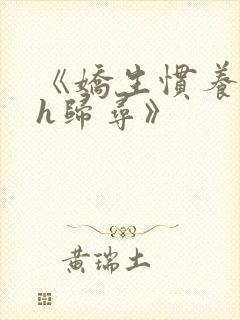 《嬌生慣養
h歸尋》
黃瑞土